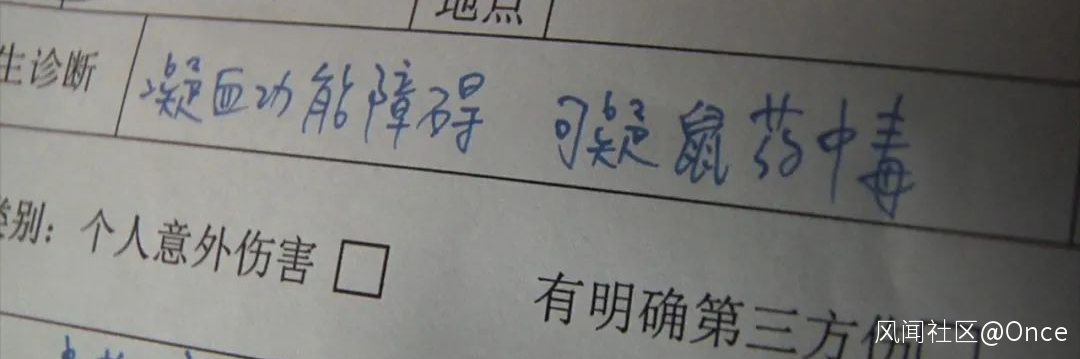 地点
生诊断 凝血功能障碍 可疑鼠药中毒
类别：个人意外伤害 □ 有明确第三方伤
风闻社区@Once